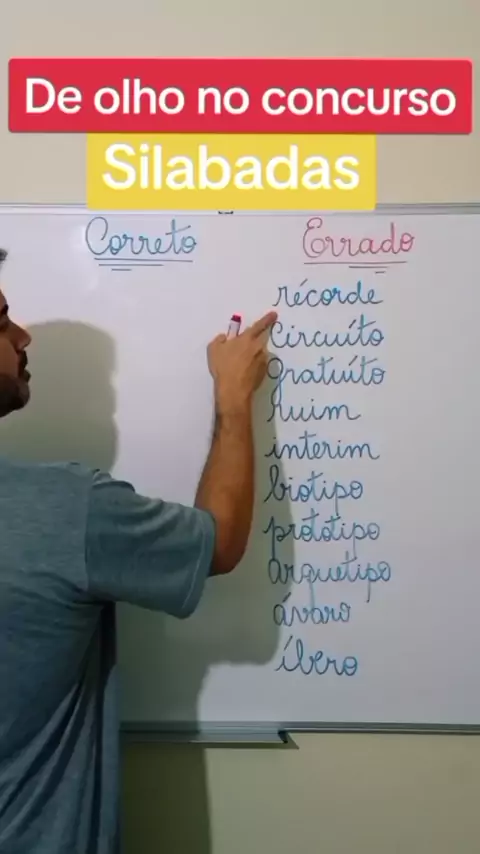 De olho no concurso
Silabadas
Correto Errado
récorde
circuíto
gratuíto
ruim
interim
biotipo
prototipo
arquetipo
ávaro
íbero